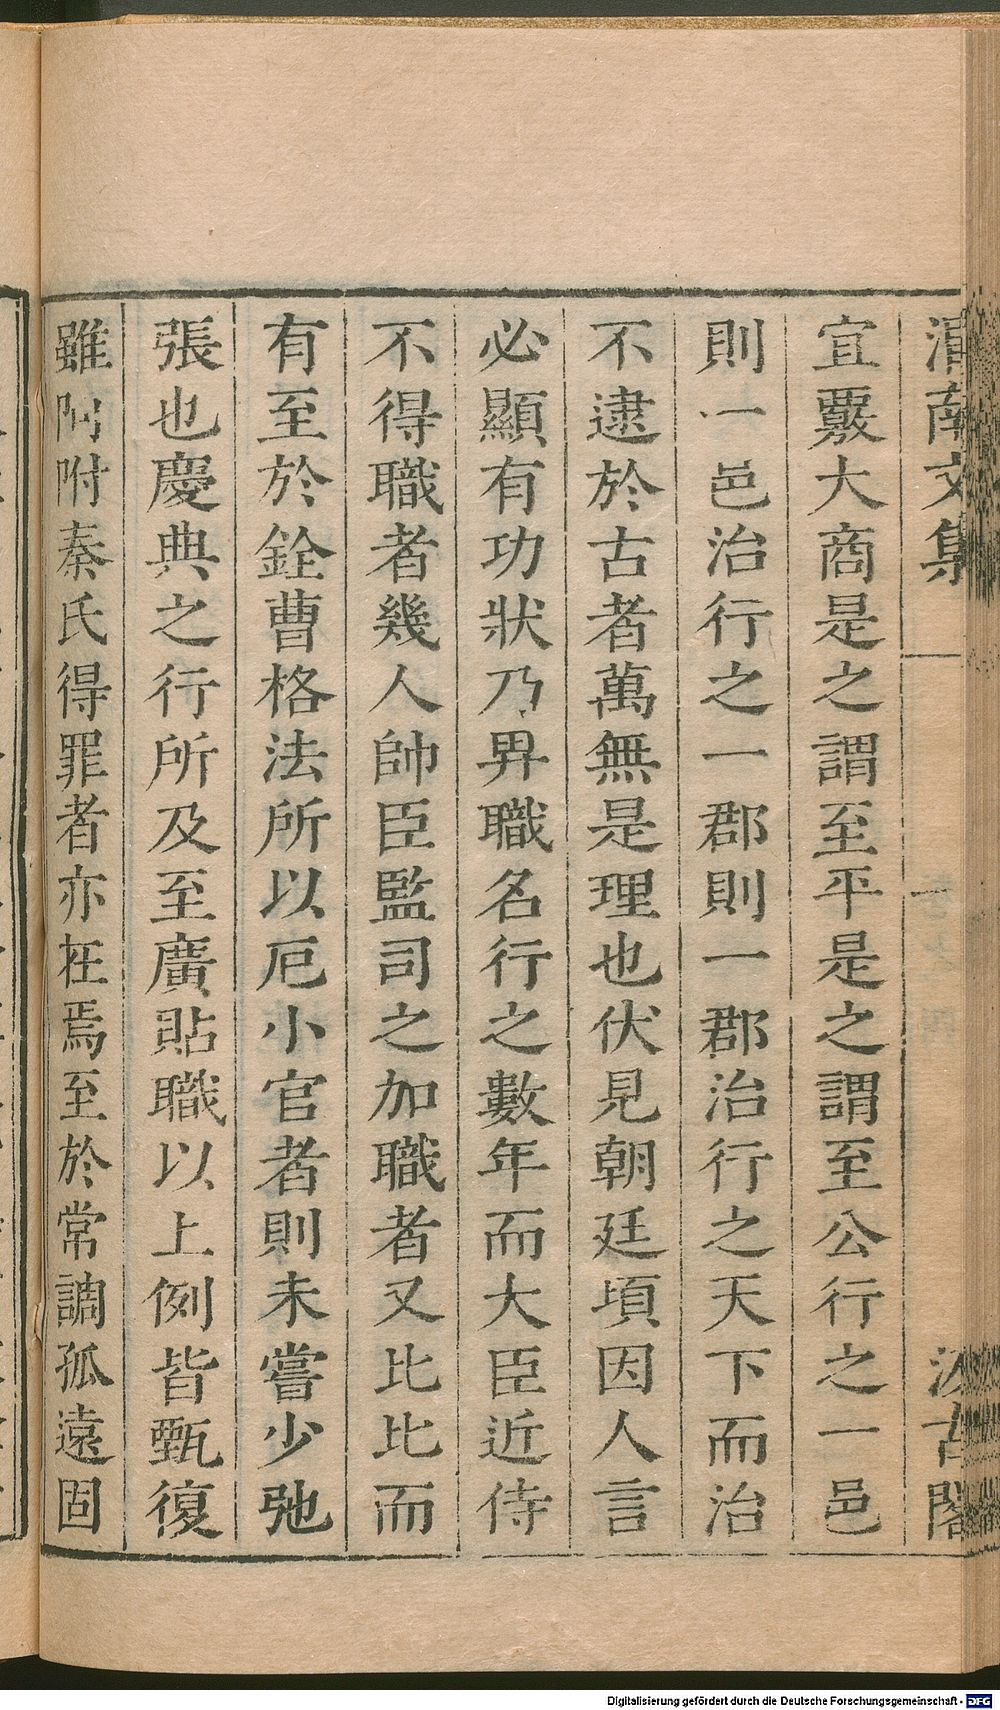 渭南文集 一 汲古閣
宜覈大商是之謂至平是之謂至公行之一邑
則一邑治行之一郡則一郡治行之天下而治
不逮於古者萬無是理也伏見朝廷頃因人言
必顯有功狀乃畀職名行之數年而大臣近侍
不得職者幾人帥臣監司之加職者又比比而
有至於銓曹格法所以厄小官者則未嘗少弛
張也慶典之行所及至廣貼職以上例皆甄復
雖阿附秦氏得罪者亦在焉至於常調孤遠固
Digitalisierung gefördert durch die Deutsche Forschungsgemeinschaft - DFG